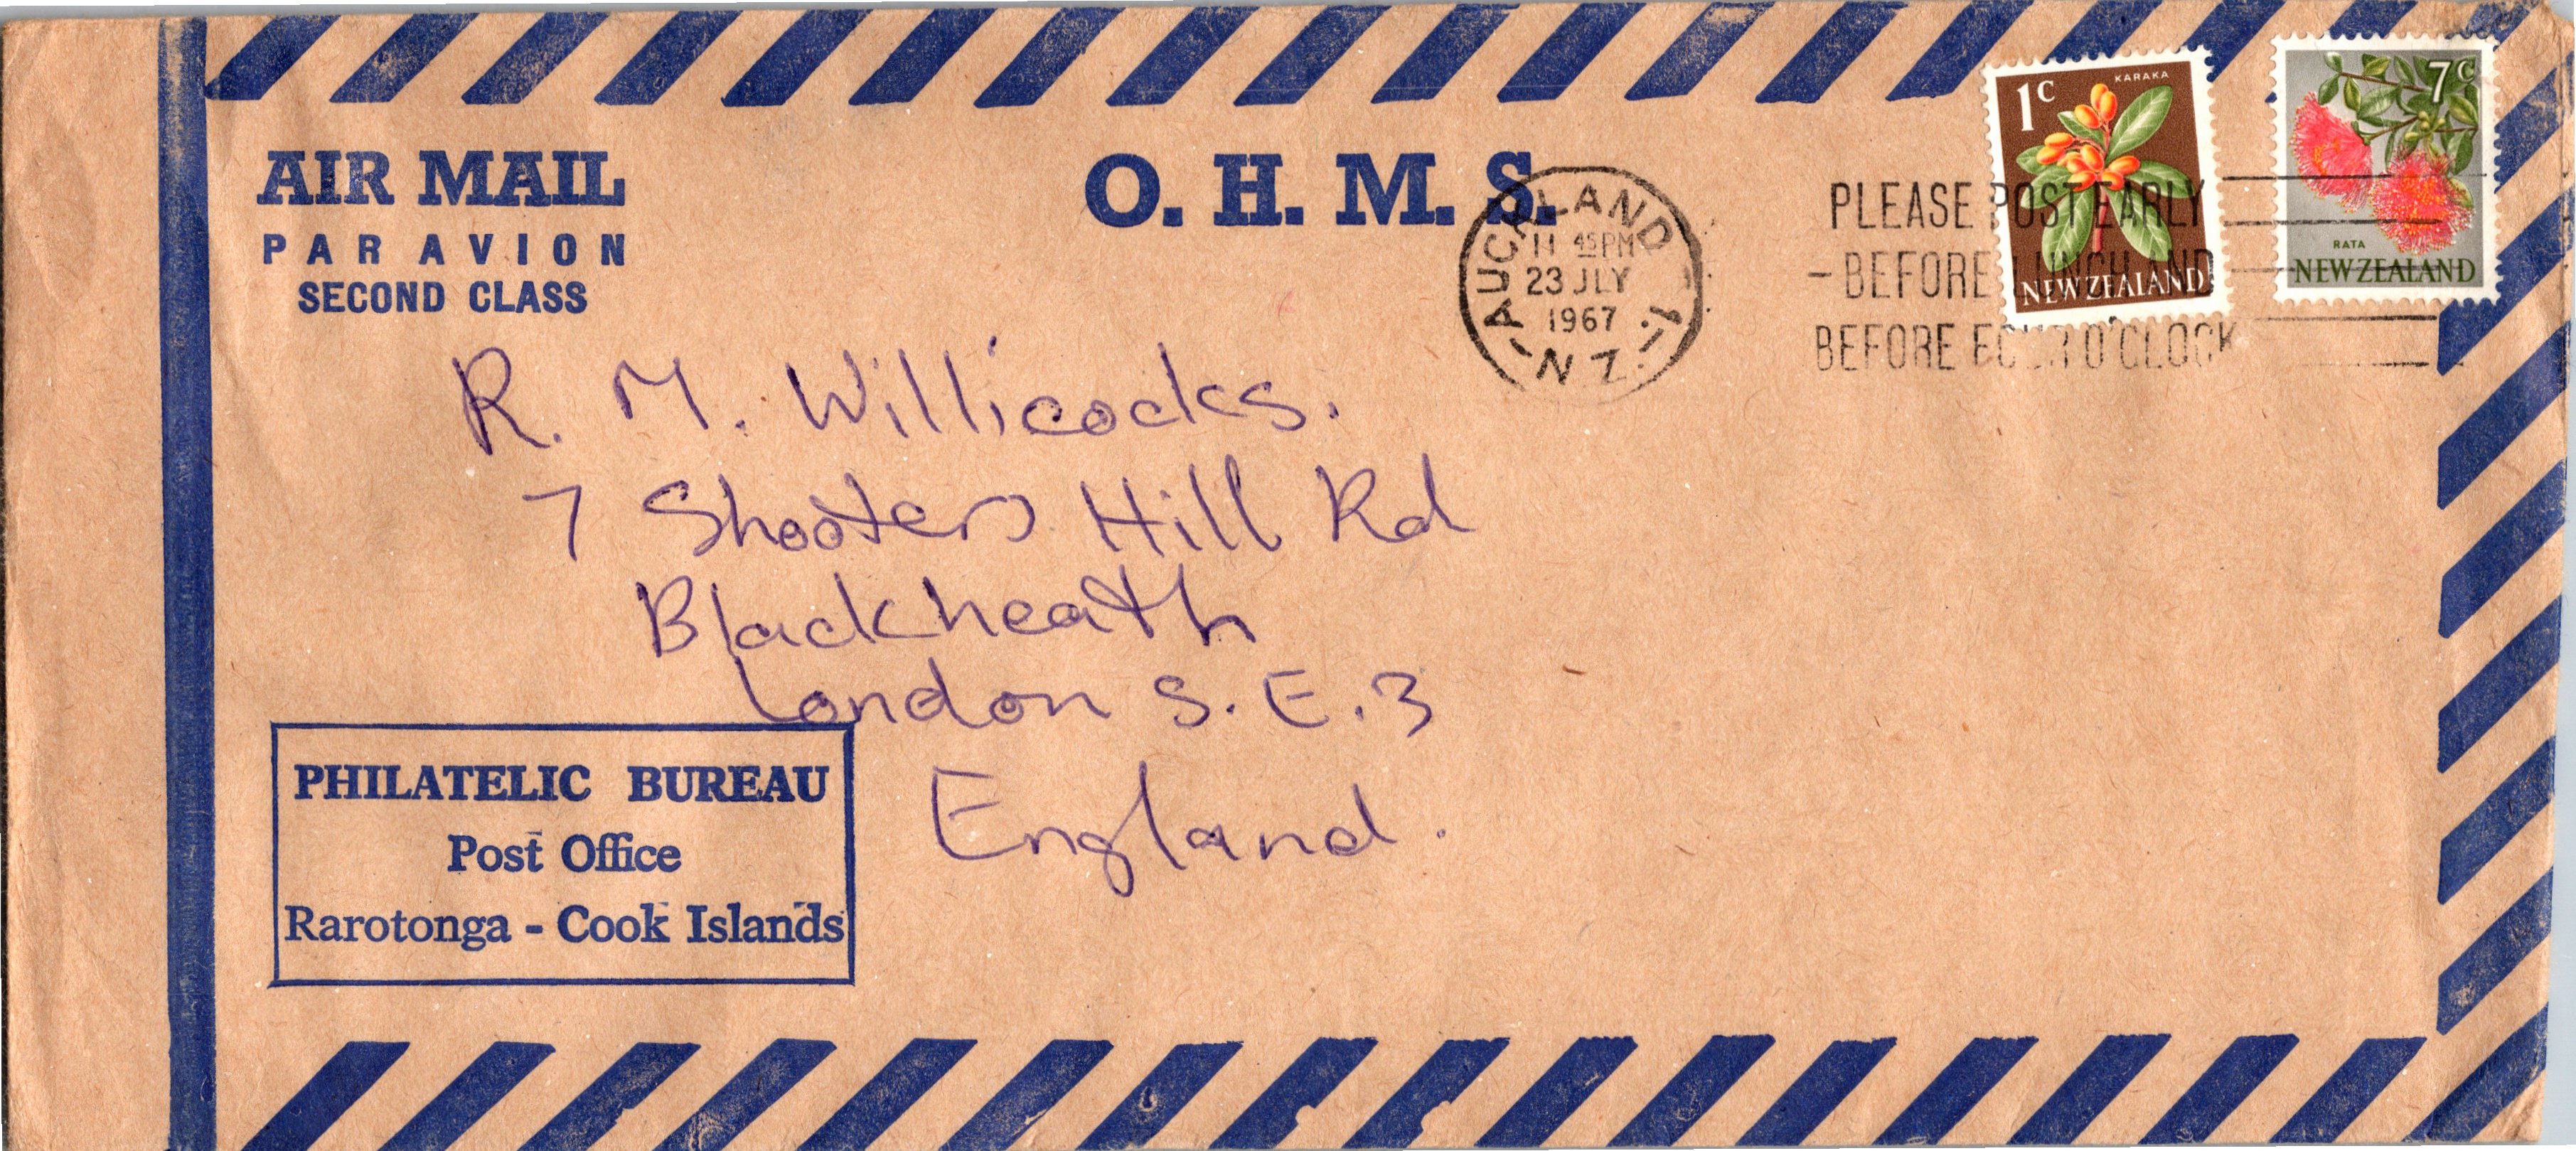 AIR MAIL
PAR AVION
SECOND CLASS
O. H. M. S.
AUCKLAND - 1.
11 45PM
23 JLY
1967
-N.Z.-
PLEASE POST EARLY
- BEFORE LUNCH AND
BEFORE FOUR O'CLOCK
1c
KARAKA
NEW ZEALAND
7c
RATA
NEW ZEALAND
R. M. Willicocks.
7 Shooters Hill Rd
Blackheath
London S.E.3
England.
PHILATELIC BUREAU
Post Office
Rarotonga - Cook Islands